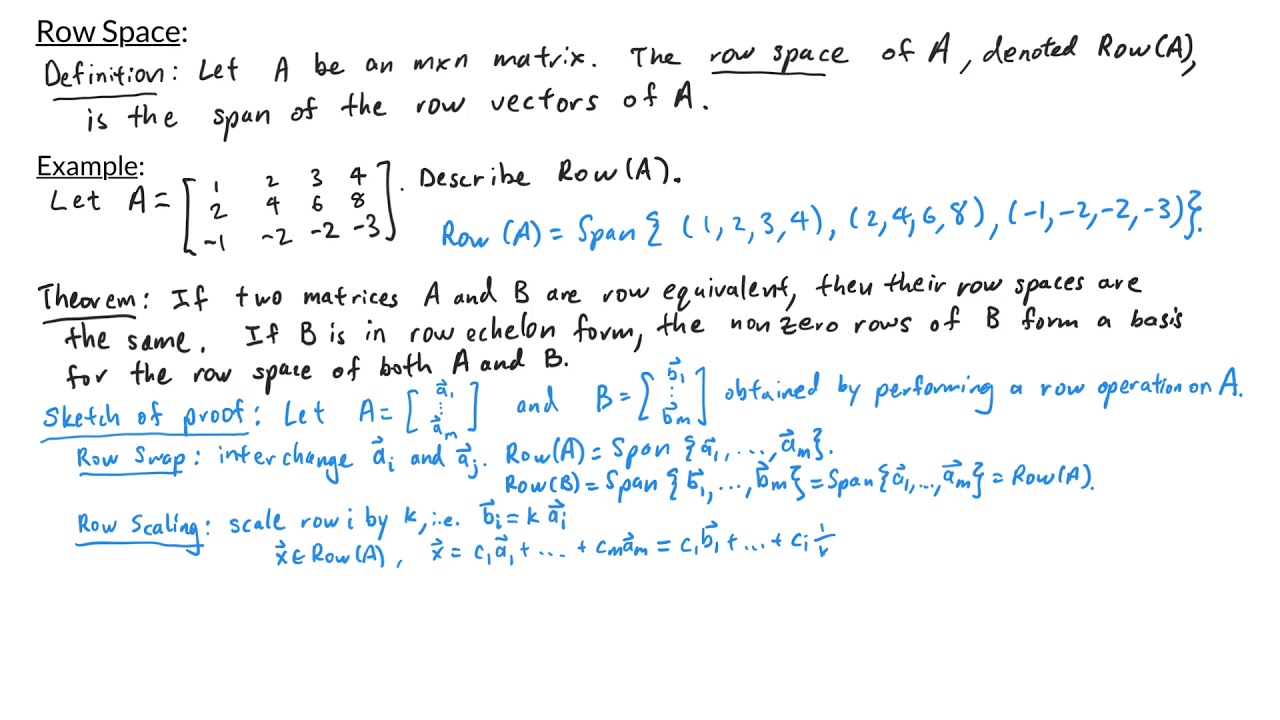 Row Space:
Definition: Let A be an m×n matrix. The row space of A, denoted Row(A),
is the span of the row vectors of A.
Example:
Let A = [1 2 3 4; 2 4 6 8; -1 -2 -2 -3]. Describe Row(A).
Row (A) = Span { (1,2,3,4), (2,4,6,8), (-1,-2,-2,-3)}.
Theorem: If two matrices A and B are row equivalent, then their row spaces are
the same. If B is in row echelon form, the nonzero rows of B form a basis
for the row space of both A and B.
Sketch of proof: Let A = [a⃗₁ ⋮ a⃗ₘ] and B = [b⃗₁ ⋮ b⃗ₘ] obtained by performing a row operation on A.
Row Swap: interchange a⃗ᵢ and a⃗ⱼ. Row(A) = Span {a⃗₁, ..., a⃗ₘ}.
Row(B) = Span {b⃗₁, ..., b⃗ₘ} = Span{a⃗₁, ..., a⃗ₘ} = Row(A).
Row Scaling: scale row i by k, i.e. b⃗ᵢ = k a⃗ᵢ
x⃗ ∈ Row(A), x⃗ = c₁a⃗₁ + ... + cₘa⃗ₘ = c₁b⃗₁ + ... + cᵢ 1/